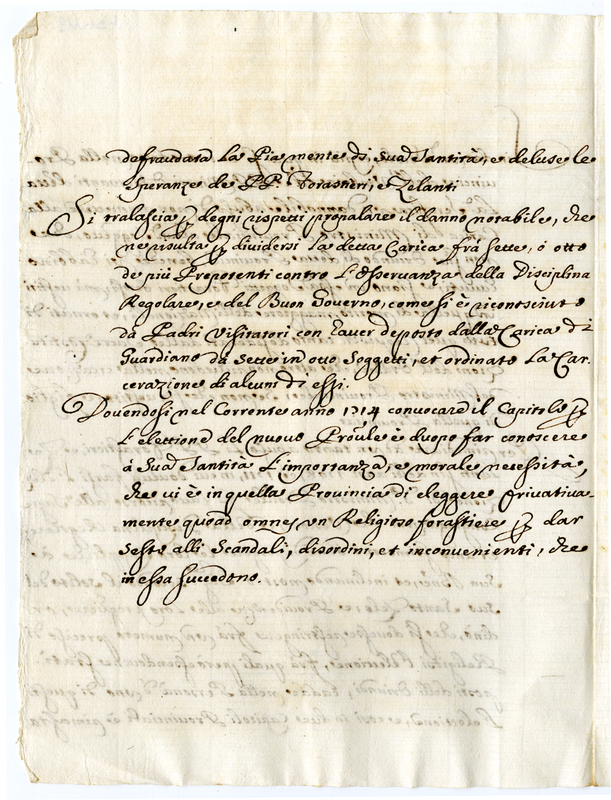 defraudata la Pia mente di Sua Santità, e deluse le
Speranze de PP. Forastieri, e Zelanti
Si tralascia p degni rispetti propalare il danno notabile, che
ne risulta p dividersi la detta Carica frà sette, ò otto
de più Prepotenti contro l'Osservanza della Disciplina
Regolare, e del Buon Governo, come si è riconosciuto
da Padri Visitatori con haver deposto dalla Carica di
Guardiano da sette in otto Soggetti, et ordinato la Car-
cerazione di alcuni di essi.
Dovendosi nel Corrente anno 1714 convocare il Capitolo p
l'elettione del nuovo Proule è duopo far conoscere
à Sua Santità l'importanza, e morale necessità,
che vi è in quella Provincia di eleggere privativa-
mente quoad omnes un Religioso forastiere p dar
sesto alli Scandali, disordini, et inconvenienti, che
in essa succedono.